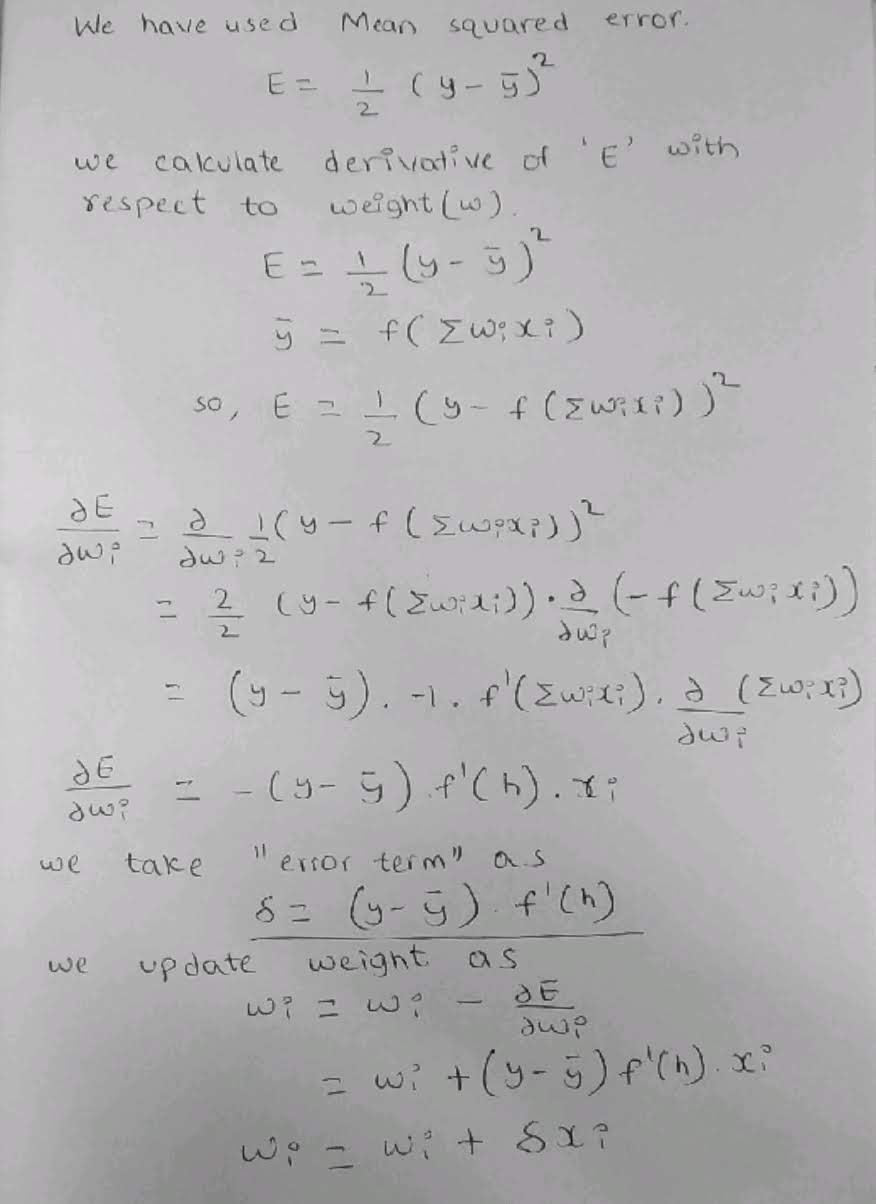 We have used Mean squared error.
E = 1/2 (y - ȳ)²
we calculate derivative of 'E' with
respect to weight (w).
E = 1/2 (y - ȳ)²
ȳ = f(Σwᵢxᵢ)
so, E = 1/2 (y - f(Σwᵢxᵢ))²
∂E/∂wᵢ = ∂/∂wᵢ 1/2 (y - f(Σwᵢxᵢ))²
= 2/2 (y - f(Σwᵢxᵢ)) · ∂/∂wᵢ (-f(Σwᵢxᵢ))
= (y - ȳ) . -1 . f'(Σwᵢxᵢ) . ∂/∂wᵢ (Σwᵢxᵢ)
∂E/∂wᵢ = -(y - ȳ) . f'(h) . xᵢ
we take "error term" as
δ = (y - ȳ) . f'(h)
we update weight as
wᵢ = wᵢ - ∂E/∂wᵢ
= wᵢ + (y - ȳ) f'(h) . xᵢ
wᵢ = wᵢ + δxᵢ